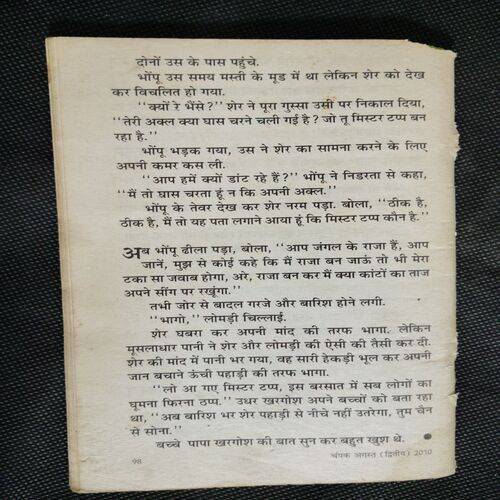 दोनों उस के पास पहुंचे.
भोंपू उस समय मस्ती के मूड में था लेकिन शेर को देख
कर विचलित हो गया.
‘‘क्यों रे भैंसे?’’ शेर ने पूरा गुस्सा उसी पर निकाल दिया,
‘‘तेरी अक्ल क्या घास चरने चली गई है? जो तू मिस्टर टप्प बन
रहा है.’’
भोंपू भड़क गया, उस ने शेर का सामना करने के लिए
अपनी कमर कस ली.
‘‘आप हमें क्यों डांट रहे हैं?’’ भोंपू ने निडरता से कहा,
‘‘मैं तो घास चरता हूं न कि अपनी अक्ल.’’
भोंपू के तेवर देख कर शेर नरम पड़ा. बोला, ‘‘ठीक है,
ठीक है, मैं तो यह पता लगाने आया हूं कि मिस्टर टप्प कौन है.’’
अब भोंपू ढीला पड़ा, बोला, ‘‘आप जंगल के राजा हैं, आप
जानें, मुझ से कोई कहे कि मैं राजा बन जाऊं तो भी मेरा
टका सा जवाब होगा, अरे, राजा बन कर मैं क्या कांटों का ताज
अपने सींग पर रखूंगा.’’
तभी जोर से बादल गरजे और बारिश होने लगी.
‘‘भागो,’’ लोमड़ी चिल्लाई.
शेर घबरा कर अपनी मांद की तरफ भागा. लेकिन
मूसलाधार पानी ने शेर और लोमड़ी की ऐसी की तैसी कर दी.
शेर की मांद में पानी भर गया, वह सारी हेकड़ी भूल कर अपनी
जान बचाने ऊंची पहाड़ी की तरफ भागा.
‘‘लो आ गए मिस्टर टप्प, इस बरसात में सब लोगों का
घूमना फिरना ठप्प.’’ उधर खरगोश अपने बच्चों को बता रहा
था, ‘‘अब बारिश भर शेर पहाड़ी से नीचे नहीं उतरेगा, तुम चैन
से सोना.’’
बच्चे पापा खरगोश की बात सुन कर बहुत खुश थे. ●
98 चंपक अगस्त (द्वितीय) 2010